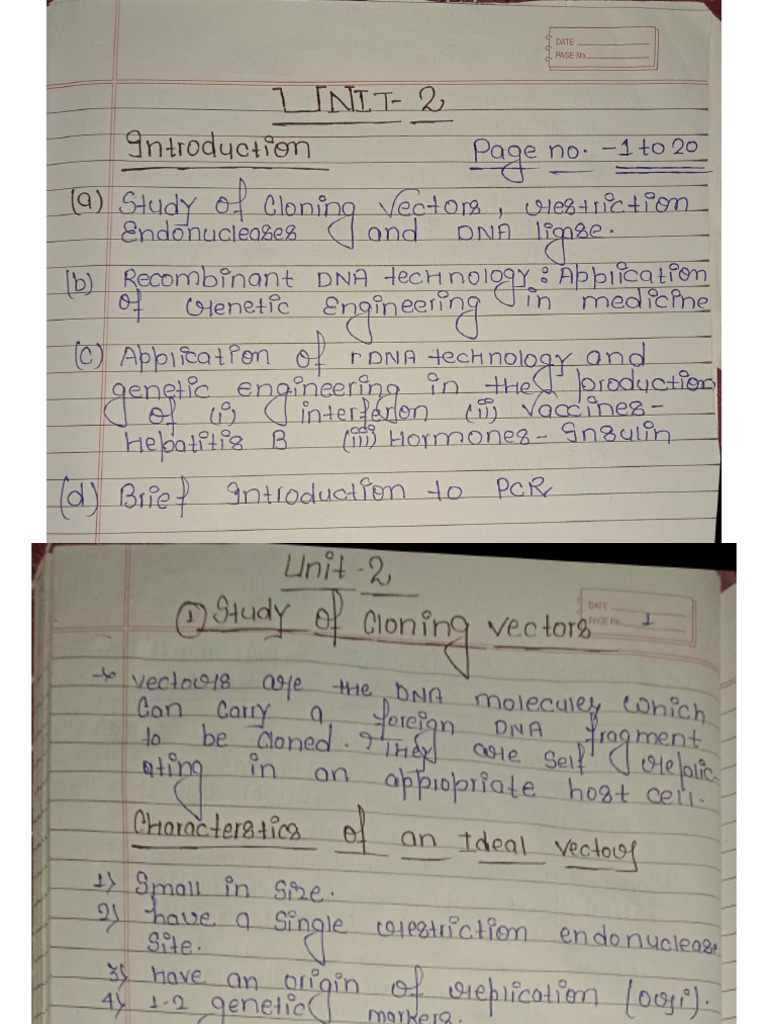 DATE
PAGE No.
UNIT-2
Introduction Page no. - 1 to 20
(a) Study of Cloning Vectors, restriction
Endonucleases and DNA ligase.
(b) Recombinant DNA technology: Application
of Genetic Engineering in medicine
(c) Application of rDNA technology and
genetic engineering in the production
of (i) interferon (ii) Vaccines-
hepatitis B (iii) Hormones - Insulin
(d) Brief Introduction to PCR
Unit-2
DATE
PAGE No. 1
① Study of Cloning vectors
* vectors are the DNA molecules which
Can Carry a foreign DNA fragment
to be cloned. They are Self replic-
ating in an appropriate host cell.
Characterstics of an Ideal vector
1) Small in Size.
2) have a Single restriction endonuclease
Site.
3) have an origin of replication (ori).
4) 1-2 genetic markers.